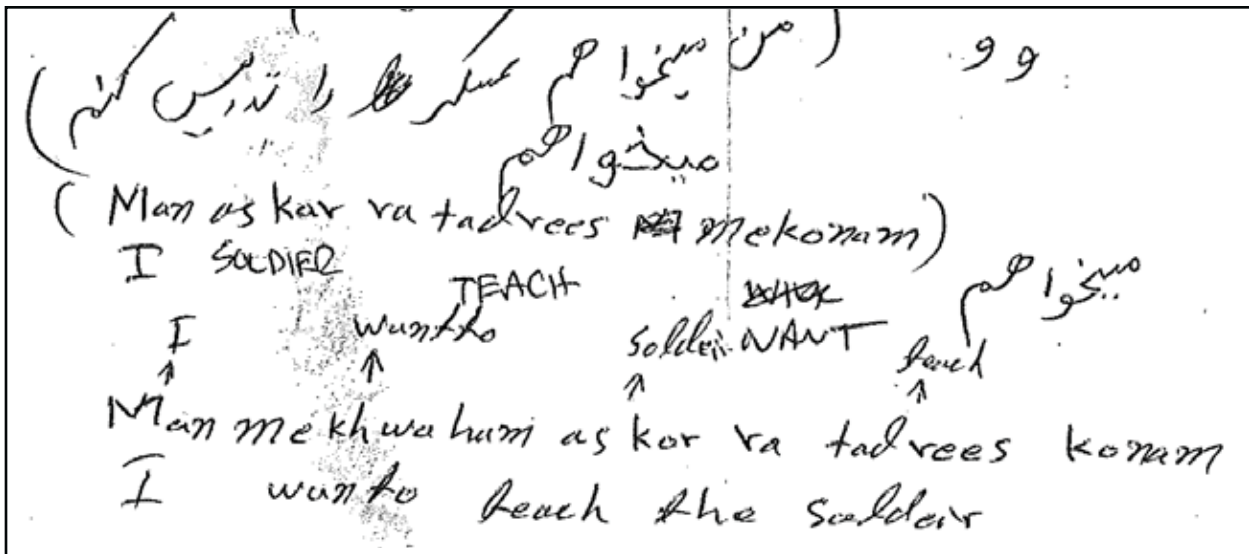 وو (من میخواهم عسکر را تدریس کنم)
میخواهم
(Man askar ra tadrees mekonam)
I SOLDIER TEACH WANT
میخواهم
I want to soldeir teach
Man mekhwaham askar ra tadrees konam
I wanto teach the soldeir